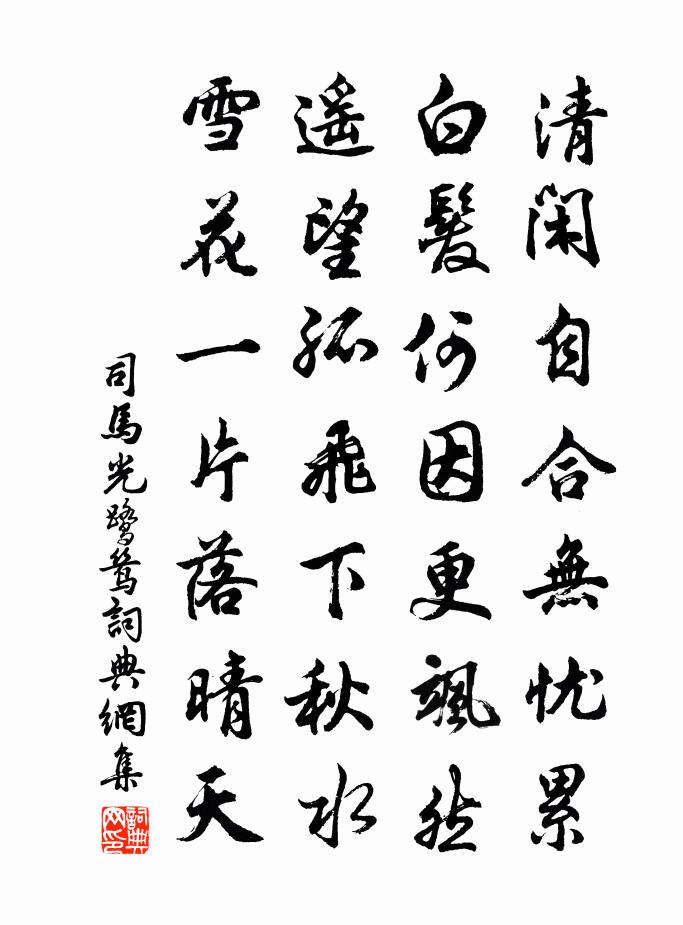 清閑自合無忧累
白髮何因更颯然
遥望孤飛下秋水
雪花一片落晴天
司馬光鹭鸶詞典網集
詞典
网印